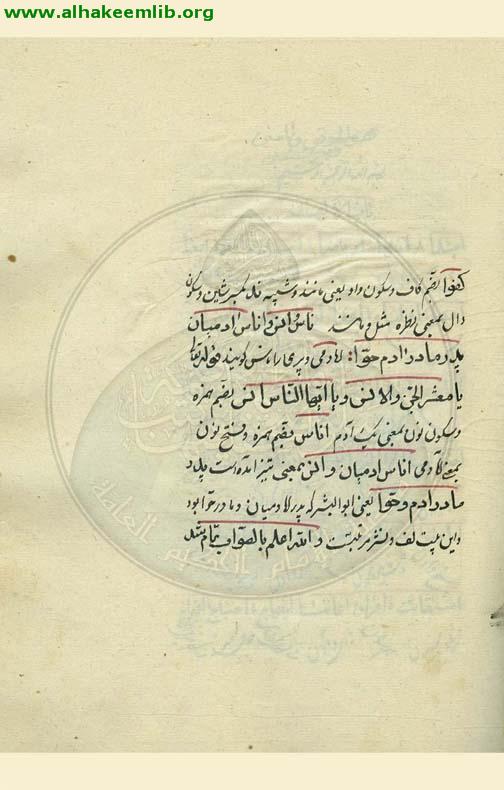 www.alhakeemlib.org
کفوا بضم کاف و سکون واو یعنی مانند و شبیه بکسر شین و سکون
دال بمعنی نظره مثل و مانند ناس و انس و اناس ادمیان
پدر مادر ادم حوا آدمی و پری را انس کویند قوله تعا
یا معشر الجن والانس و یا ایها الناس انس بضم همزه
و سکون نون بمعنی آدم اناس بضم همزه و فتح نون
بمعنی آدمی اناس ادمیان و انس بمعنی نیز امده است پدر
مادر ادم و حوا یعنی ابوالبشر که پدر آدمیان و مادر حوا بود
و این بیت لف و نشر مرتبست والله اعلم بالصواب تمام شد